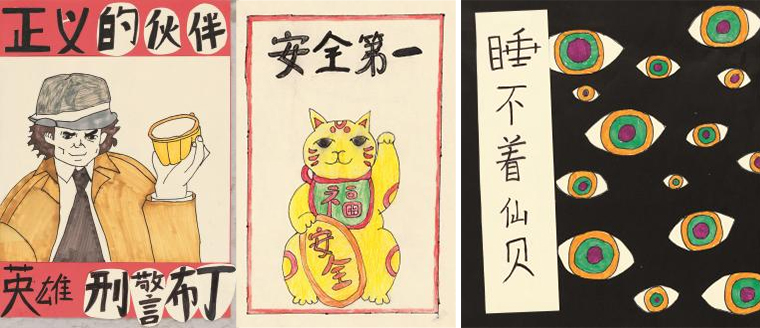 正义的伙伴
英雄刑警布丁
安全第一
福
安全
睡不着仙贝